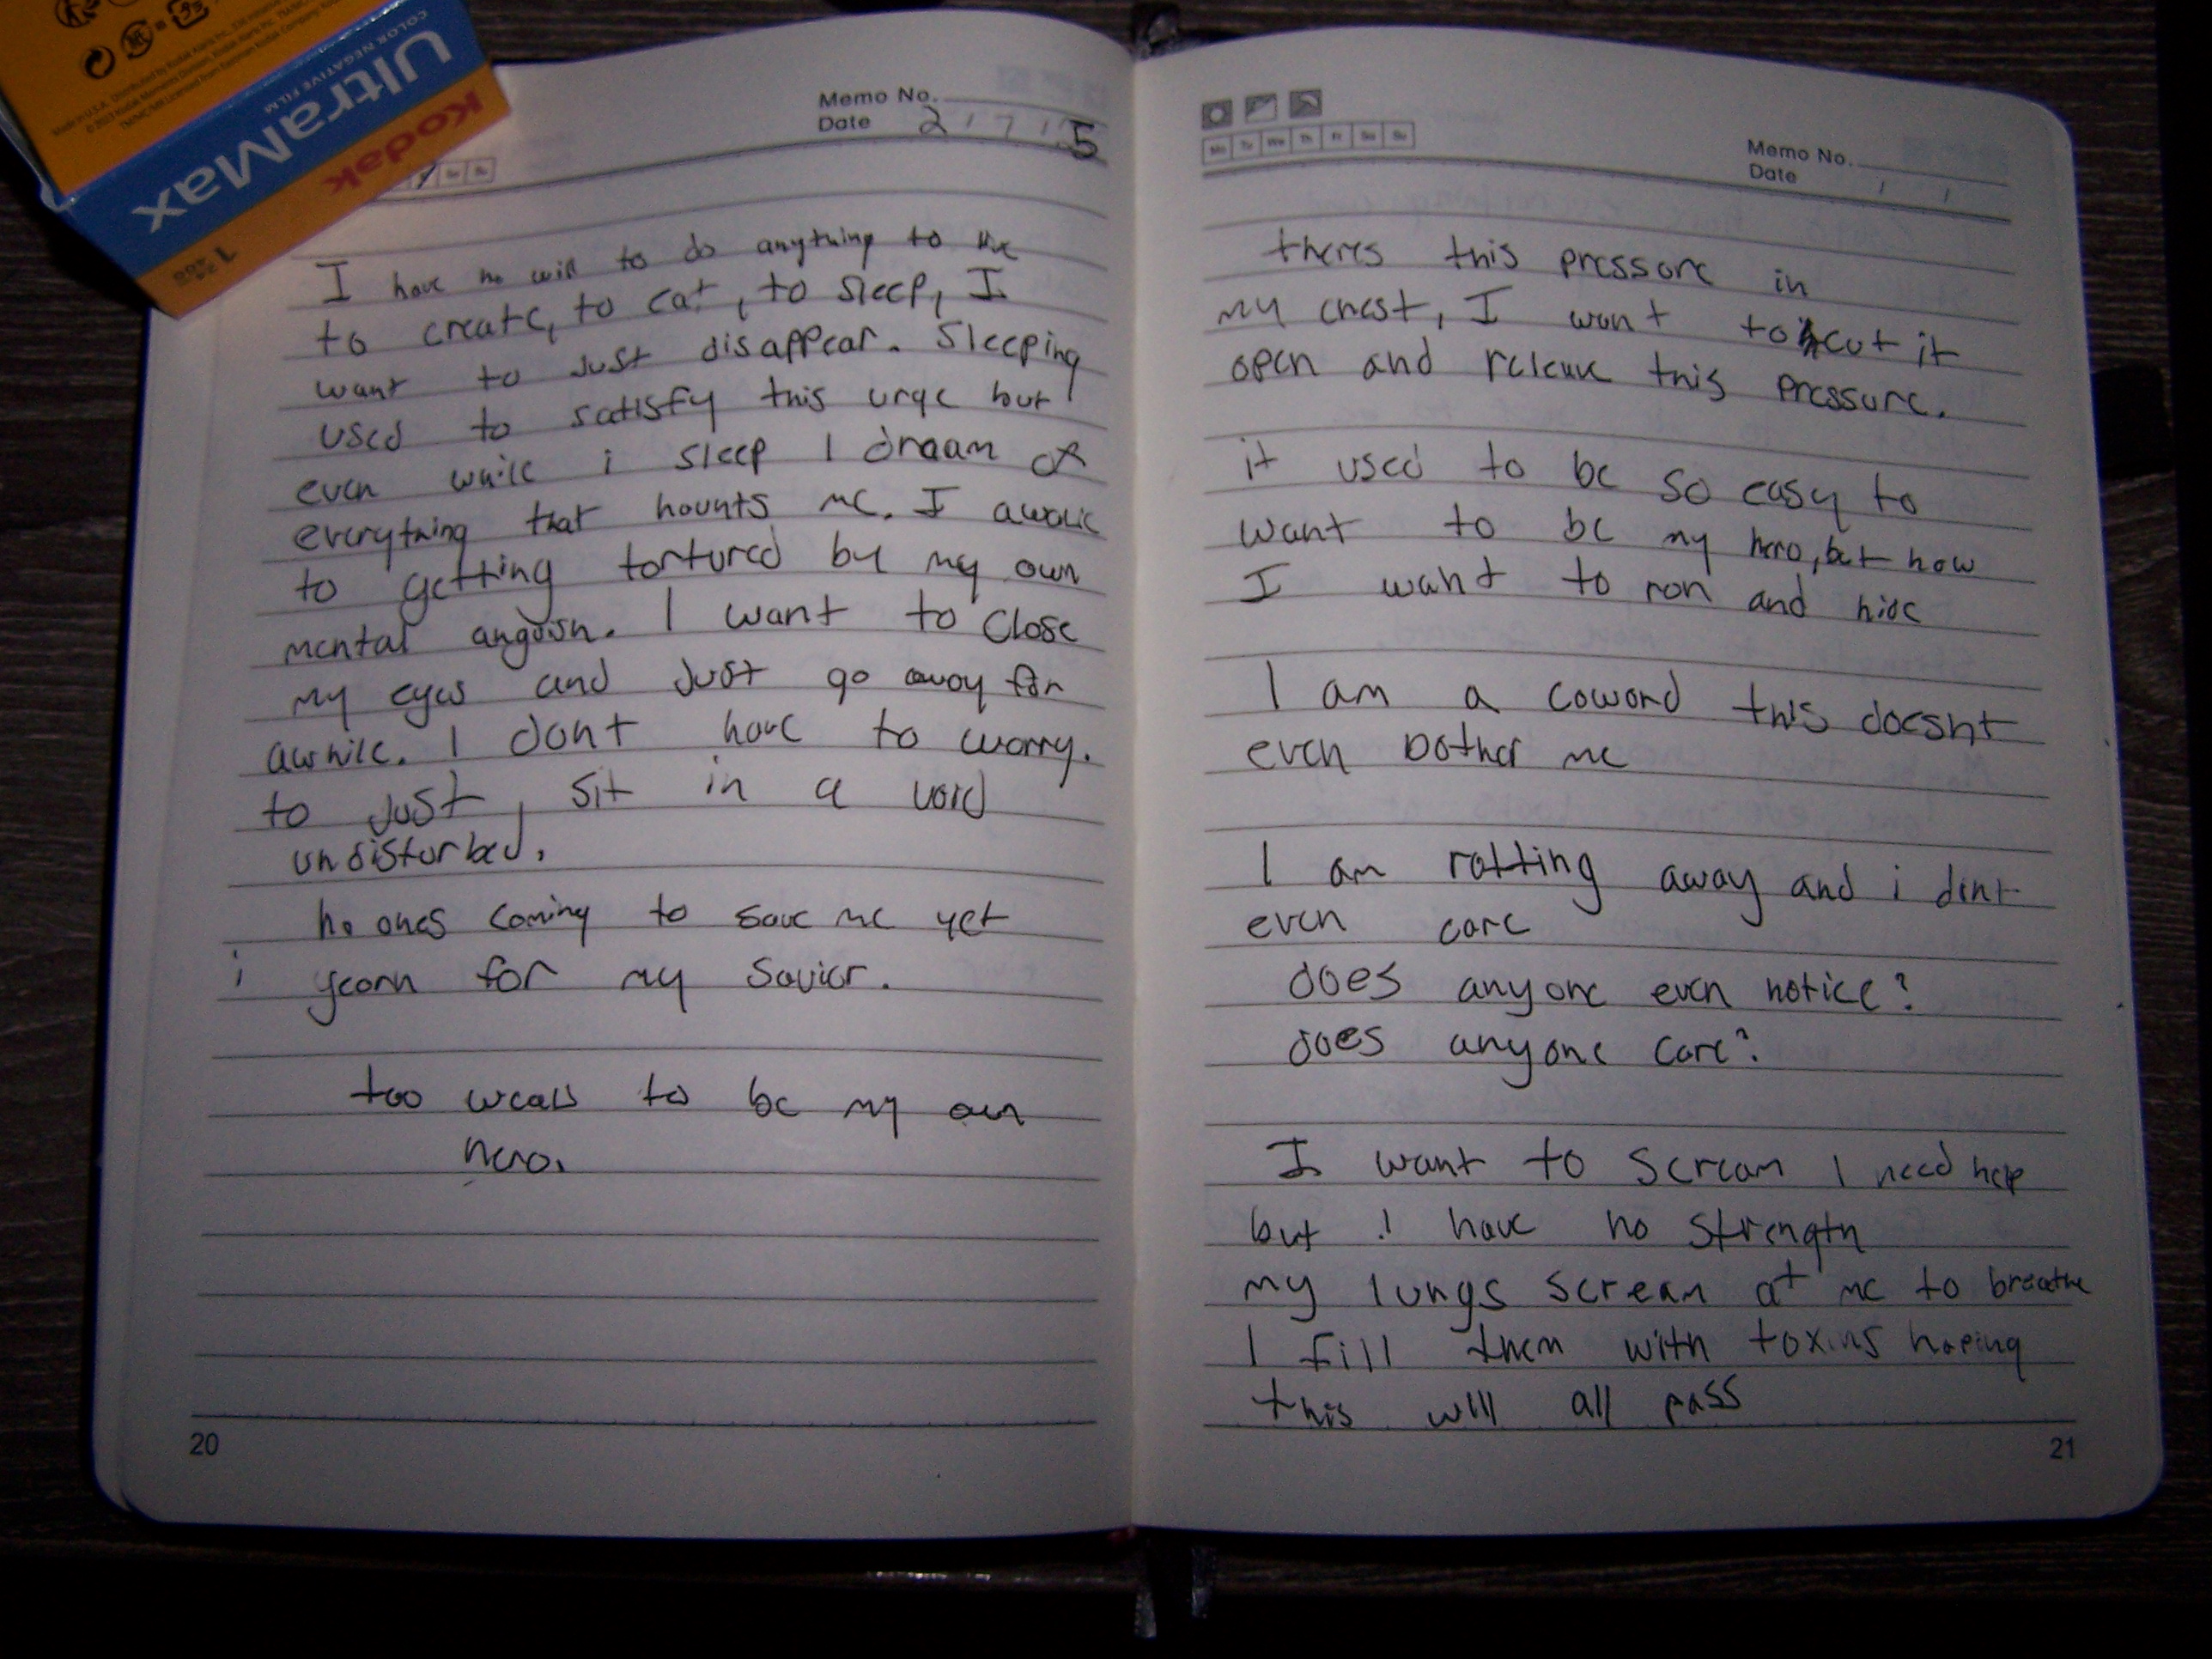 UltraMax
COLOR NEGATIVE FILM
Kodak
400
Memo No.
Date 2 / 7 / 5
I have no will to do anything to live
to create, to eat, to sleep, I
want to just disappear. Sleeping
used to satisfy this urge but
even while i sleep I dream of
everything that haunts me. I awake
to getting tortured by my own
mental anguish. I want to close
my eyes and just go away for
awhile. I dont have to worry.
to just, sit in a void
undisturbed.
no ones coming to save me yet
i yearn for my savior.
too weak to be my own
hero.
20
Mo Tu We Th Fr Sa Su
Memo No.
Date / /
theres this pressure in
my chest, I want to cut it
open and release this pressure.
it used to be so easy to
want to be my hero, but now
I want to run and hide
I am a coward this doesnt
even bother me
I am rotting away and i dint
even care
does anyone even notice?
does anyone care?
I want to scream I need help
but I have no strength
my lungs scream at me to breathe
I fill them with toxins hoping
this will all pass
21